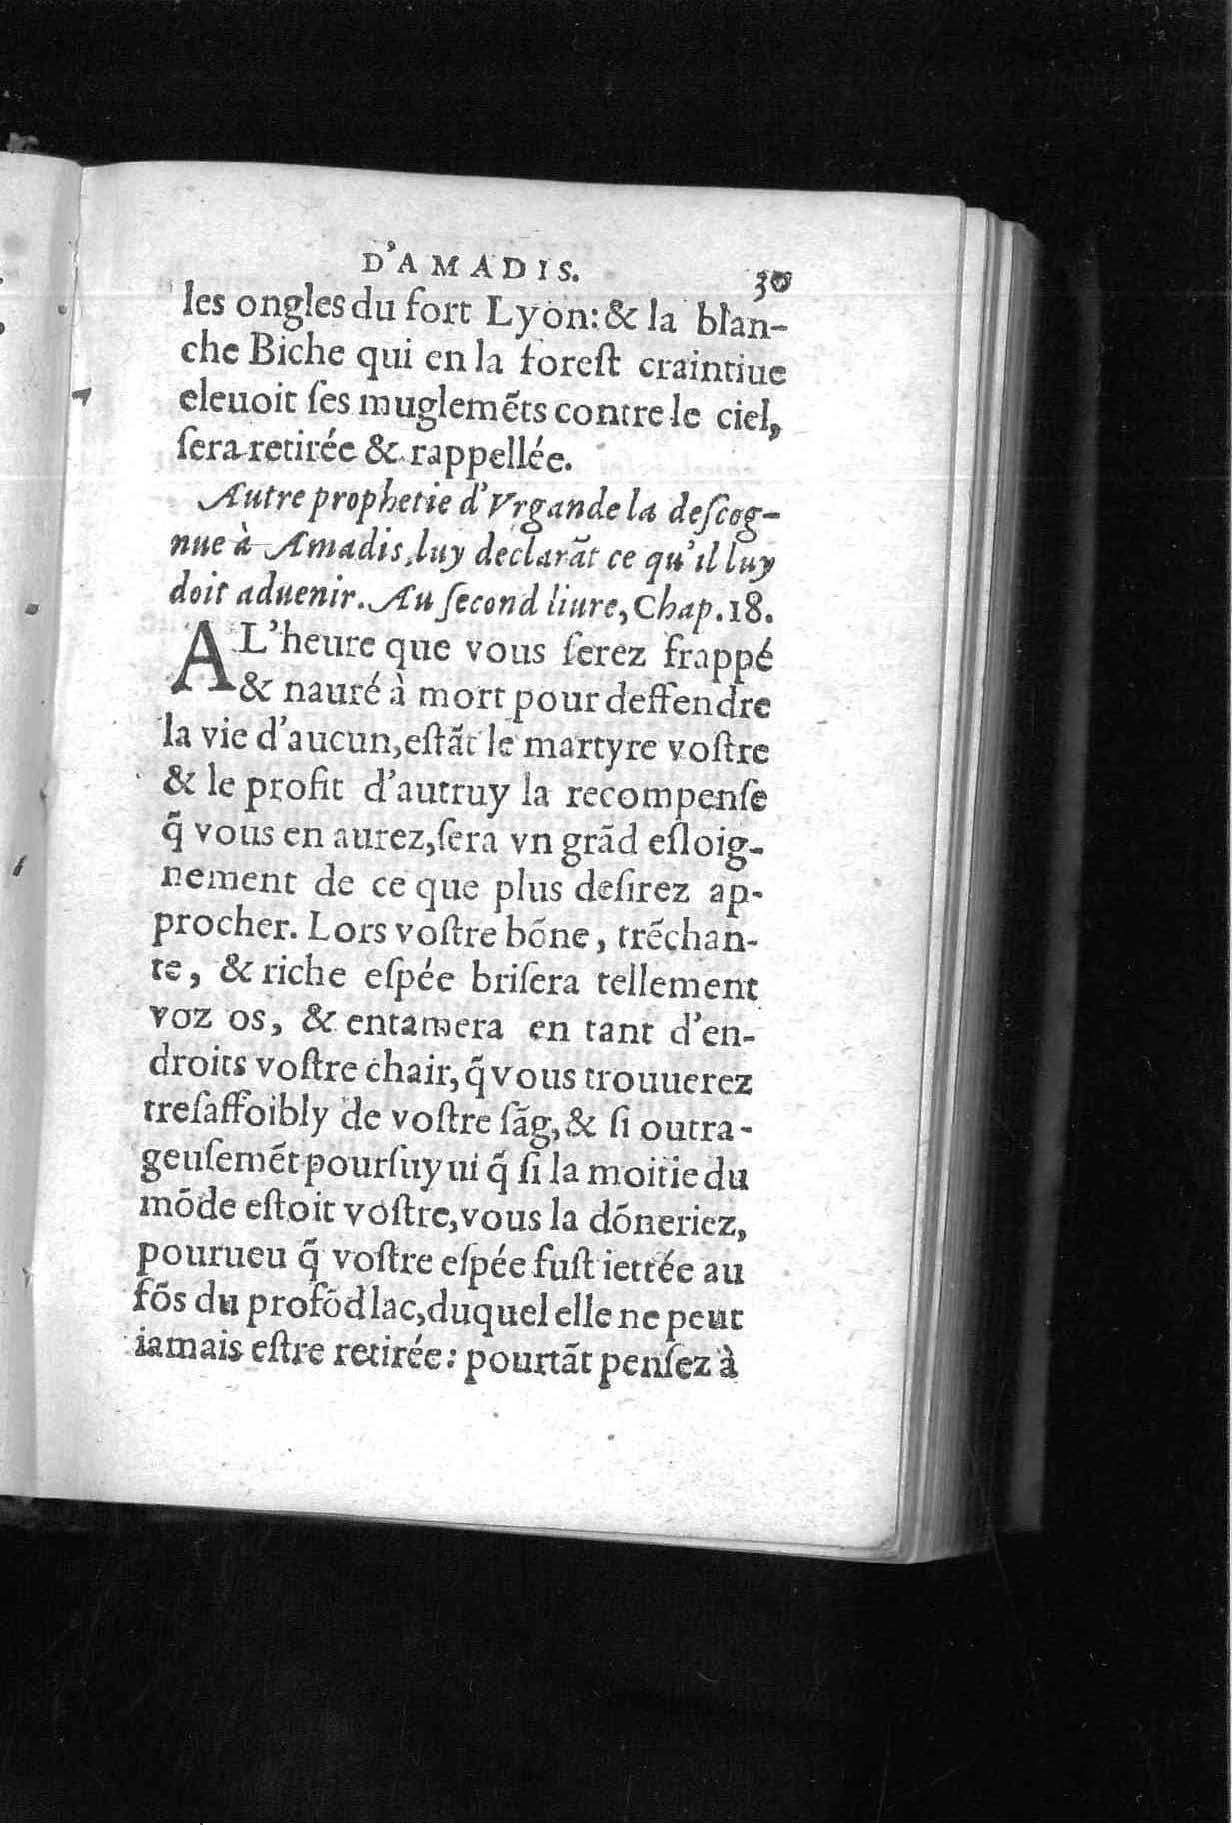 D'AMADIS. 30
les ongles du fort Lyon: & la blan-
che Biche qui en la foreſt craintiue
eleuoit ſes muglemẽts contre le ciel,
ſera retirée & rappellée.
Autre prophetie d'Vrgande la deſcog-
nue à Amadis, luy declarãt ce qu'il luy
doit aduenir. Au ſecond liure, Chap. 18.
AL'heure que vous ſerez frappé
& nauré à mort pour deffendre
la vie d'aucun, eſtãt le martyre voſtre
& le profit d'autruy la recompenſe
q̃ vous en aurez, ſera vn grãd eſloig-
nement de ce que plus deſirez ap-
procher. Lors voſtre bõne, trẽchan-
te, & riche eſpée briſera tellement
voz os, & entamera en tant d'en-
droits voſtre chair, q̃ vous trouuerez
treſaffoibly de voſtre ſãg, & ſi outra-
geuſemẽt pourſuyui q̃ ſi la moitie du
mõde eſtoit voſtre, vous la dõneriez,
pourueu q̃ voſtre eſpée fuſt iettée au
fõs du profõd lac, duquel elle ne peut
iamais eſtre retirée: pourtãt penſez à